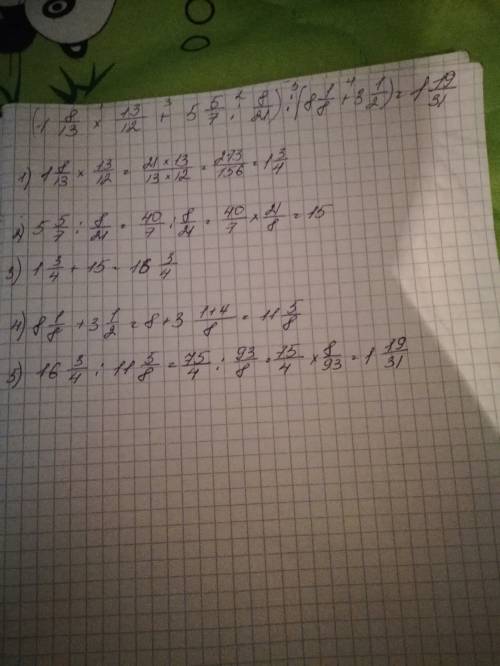 (1 8/13 × 13/12 + 5 5/7 : 8/21) : (8 1/8 + 3 1/2) = 1 19/31
1) 1 8/13 × 13/12 = 21×13/13×12 = 273/156 = 1 3/4
2) 5 5/7 : 8/21 = 40/7 : 8/21 = 40/7 × 21/8 = 15
3) 1 3/4 + 15 = 16 3/4
4) 8 1/8 + 3 1/2 = 8 + 3 1+4/8 = 11 5/8
5) 16 3/4 : 11 5/8 = 75/4 : 93/8 = 75/4 × 8/93 = 1 19/31